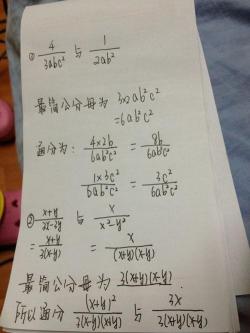 ① 4/(3abc²) 与 1/(2ab²)
最简公分母为 3×2ab²c²
=6ab²c²
通分为: (4×2b)/(6ab²c²) = 8b/(6ab²c²)
(1×3c²)/(6ab²c²) = 3c²/(6ab²c²)
② (x+y)/(3x-3y) 与 x/(x²-y²)
= (x+y)/(3(x-y)) = x/((x+y)(x-y))
最简公分母为 3(x+y)(x-y).
所以通分 (x+y)²/(3(x-y)(x+y)) 与 3x/(3(x+y)(x-y))